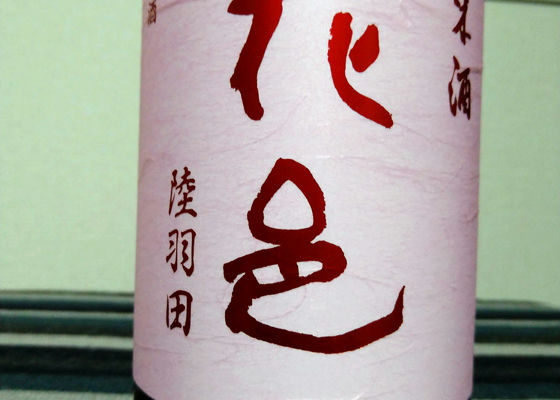 米酒
花邑
陸羽田
酒